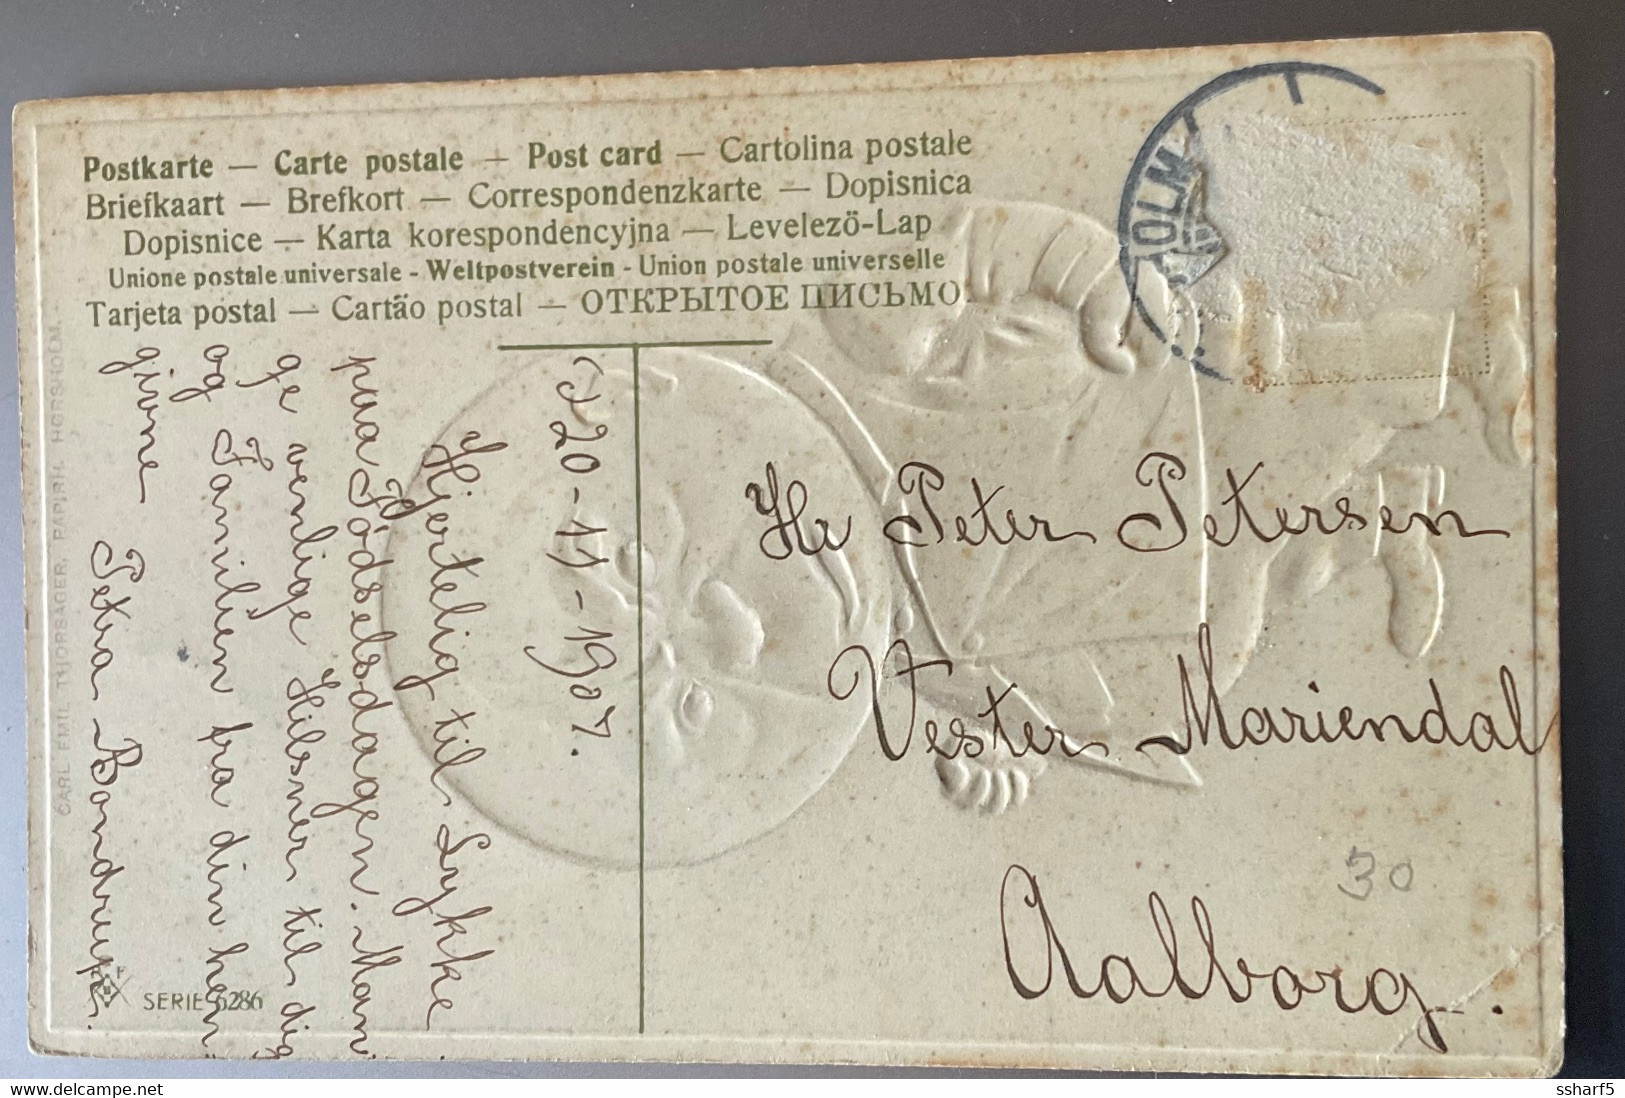 Postkarte — Carte postale — Post card — Cartolina postale
Briefkaart — Brefkort — Correspondenzkarte — Dopisnica
Dopisnice — Karta korespondencyjna — Levelezö-Lap
Unione postale universale - Weltpostverein - Union postale universelle
Tarjeta postal — Cartão postal — ОТКРЫТОЕ ПИСЬМО.
OLM
D 20-11-1907.
Hjertelig til Lykke
paa Födselsdagen. Man
ge venlige Hilsner til dig
og Familien fra din hen
givne
Petra Bondrup.
Hr Peter Petersen
Vester Mariendal
Aalborg.
30
CARL EMIL THORSAGER, PAPIRH. HØRSHOLM.
SERIE 6286
www.delcampe.net
ssharf5